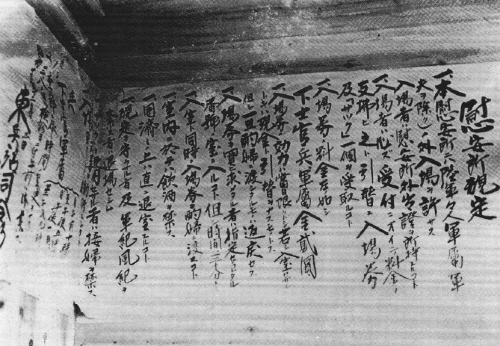 慰安所規定
一、本慰安所ニハ陸軍々人軍属(軍
夫ヲ除ク)ノ外入場ヲ許サズ
一、入場者ハ慰安所外出證ヲ所持スルコト
一、入場者ハ必ズ受付ニオイテ料金ヲ
支拂ヒ之ト引替ニ入場券
及ビ「サック」一個ヲ受取ルコト
一、入場券ノ料金左ノ如シ
下士官、兵、軍属金貳圓
一、入場券ノ効力ハ當日限リトシ若シ入室セザル
トキハ現金ト引替ヲナスモノトス
但シ一旦酌婦ニ渡シタルモノハ返戻セズ
一、入場券ヲ買求メタル者ハ指定セラレタル
番號ノ室ニ入ルコト但シ時間ハ三十分トス
一、入室ト同時ニ入場券ヲ酌婦ニ渡スコト
一、室内ニ於テハ飲酒ヲ禁ズ
一、用済ミノ上ハ直ニ退室スルコト
一、規定ヲ守ラザル者及ビ軍紀風紀ヲ
紊ス者ハ退場セシム
一、サックヲ使用セザル者ハ接婦ヲ禁ズ
東兵站司令部